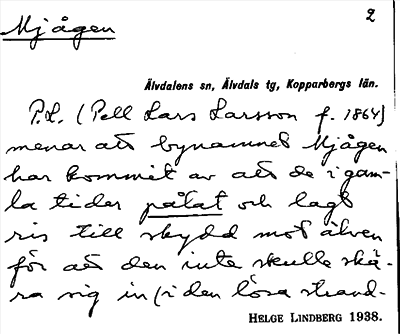 2
Mjågen
Älvdalens sn, Älvdals tg, Kopparbergs län.
P.L. (Pell Lars Larsson f. 1864)
menar att bynamnet Mjågen
har kommit av att de i gam-
la tider pålat och lagt
ris till skydd mot älven
för att den inte skulle skä-
ra sig in (i den lösa strand-
HELGE LINDBERG 1938.